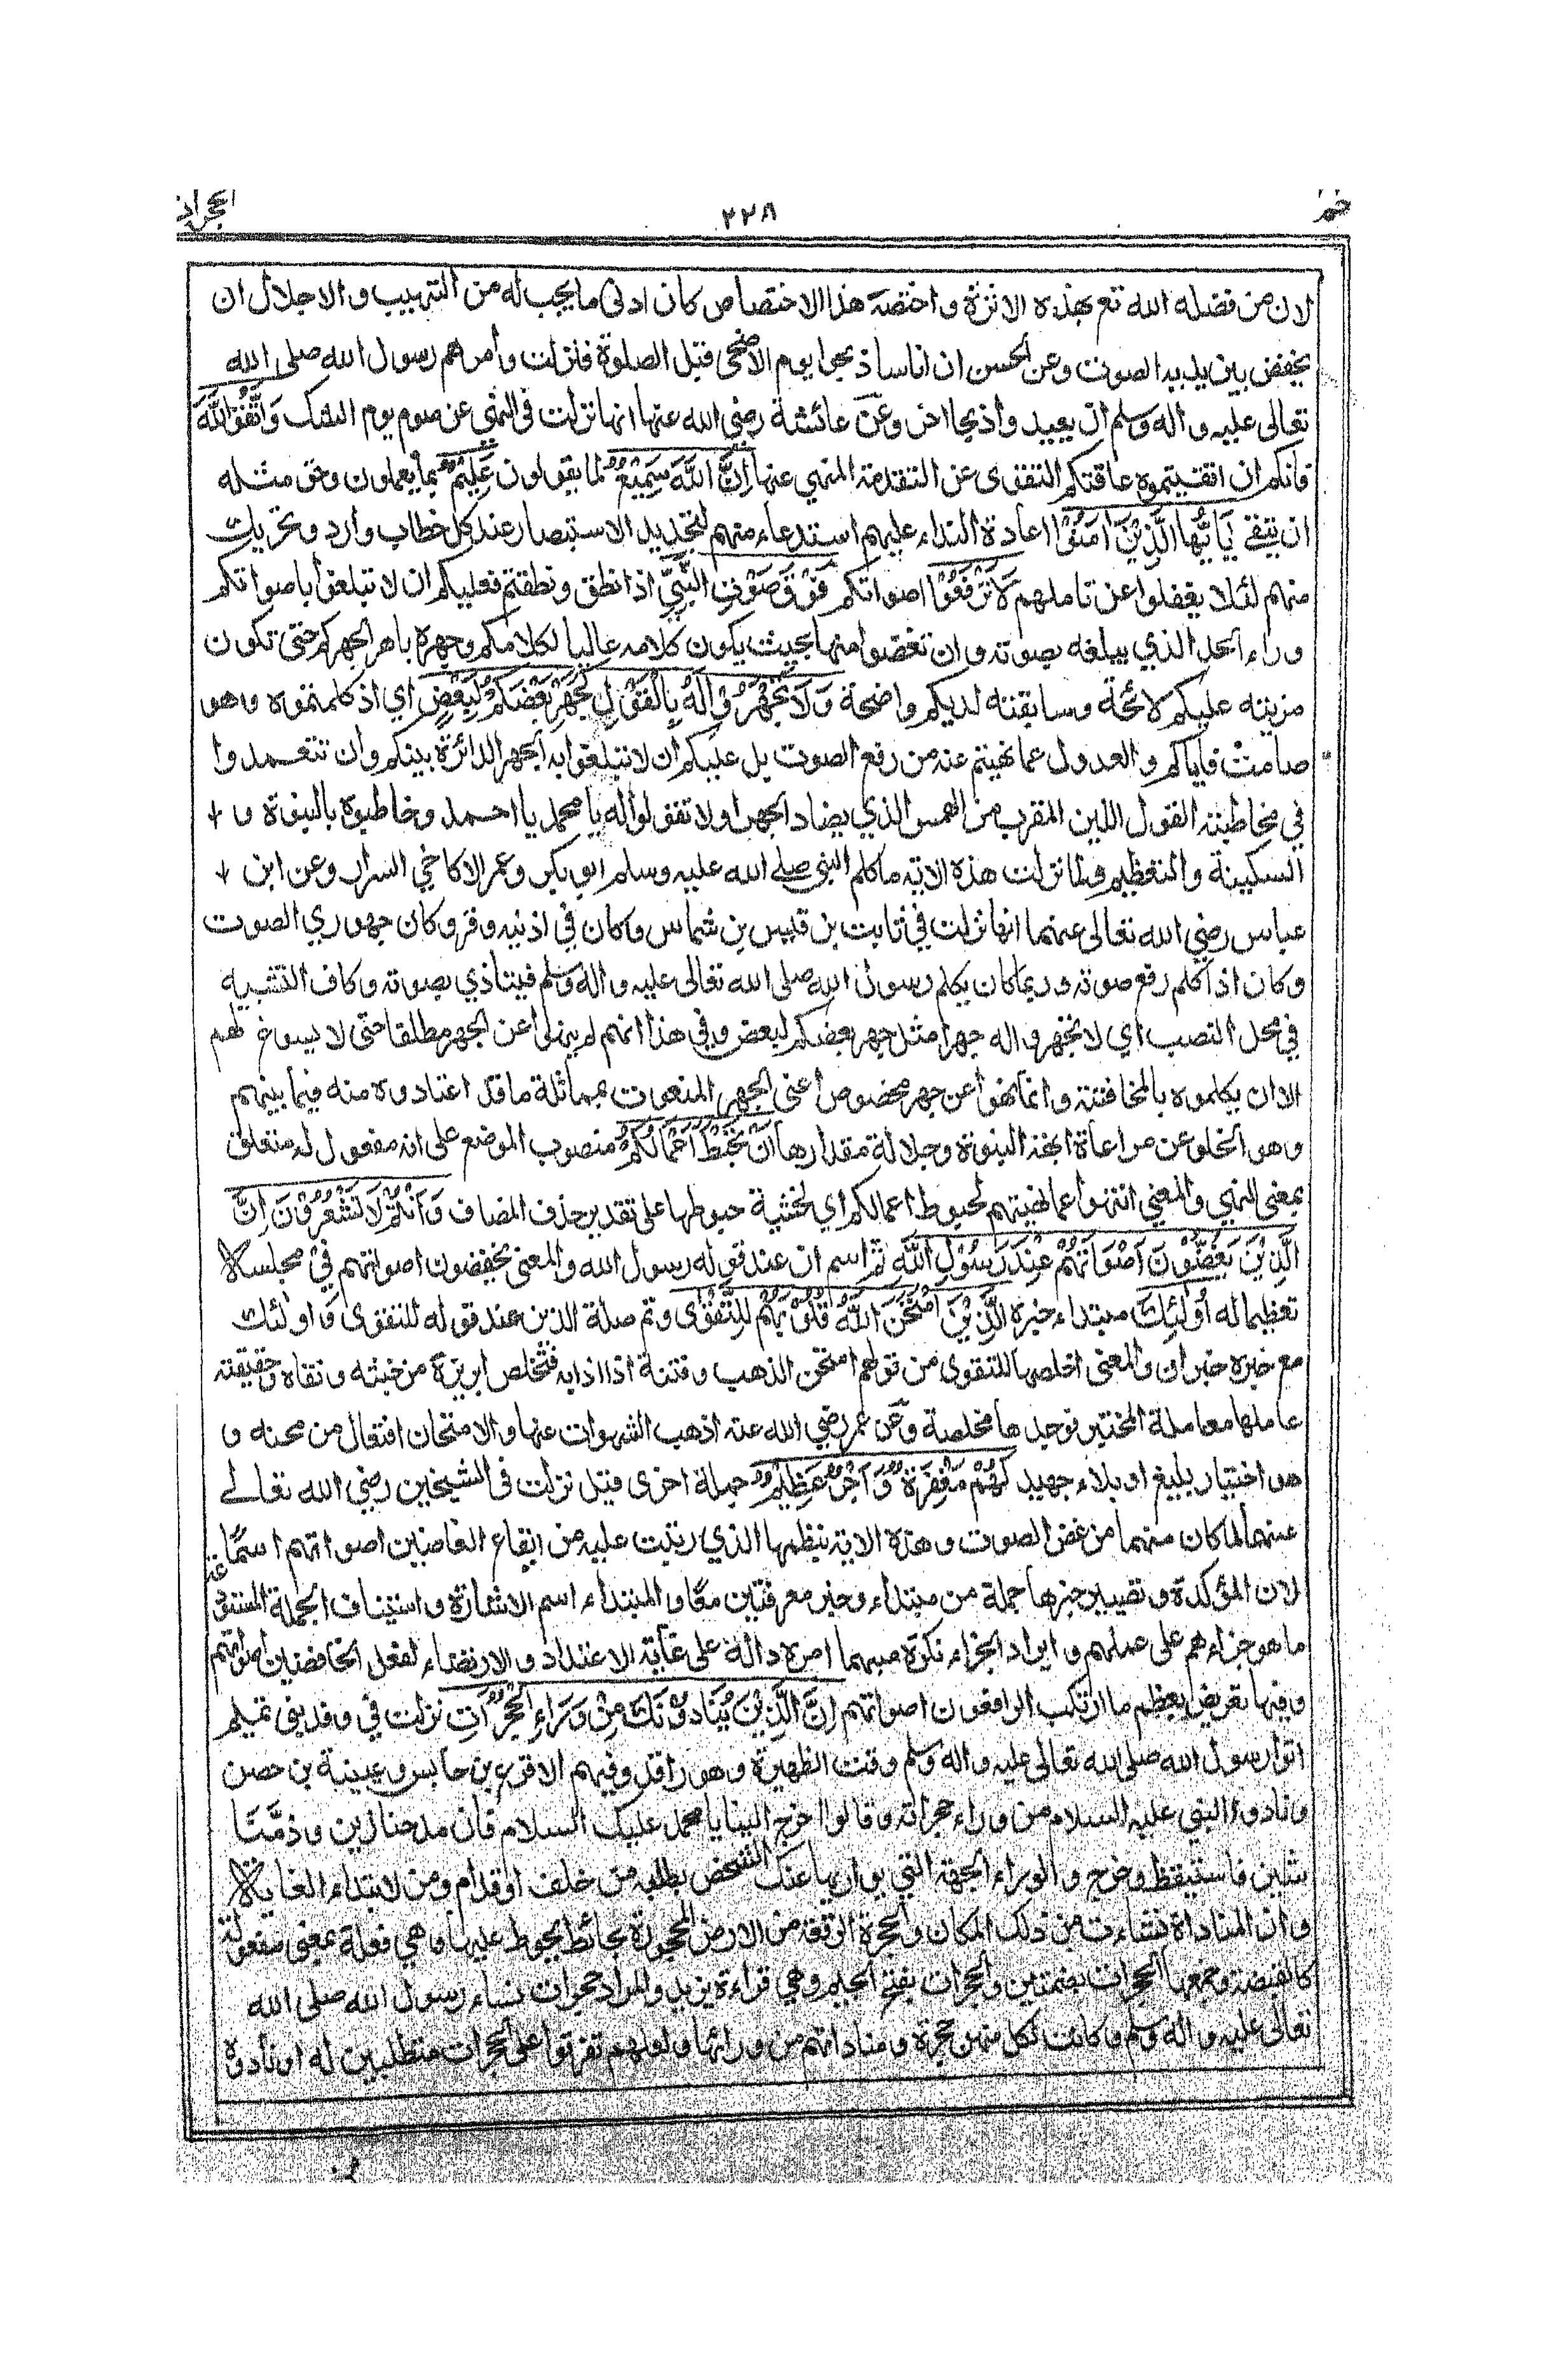 حم ٢٢٨ الحجرات
لان من فضله الله تع بهذه الاثرة واختصه هذا الاختصاص كان ادنى ما يجب له من التهييب والاجلال ان
يخفض بين يديه الصوت وعن الحسن ان اناسا ذبحوا يوم الاضحى قبل الصلوة فنزلت وأمرهم رسول الله صلى الله
تعالى عليه واله وسلم ان يعيدوا ذبحا اخر وعن عائشة رضي الله عنها انها نزلت في النهى عن صوم يوم الشك وَاتَّقُوا اللّٰهَ
فانكم ان اتقيتموه عاقتكم التقوى عن التقدمة المنهي عنها اِنَّ اللّٰهَ سَمِيْعٌ لما يقولون عَلِيْمٌ بما يعملون وحق مثله
ان يتقى يَاَيُّهَا الَّذِيْنَ اٰمَنُوْا اعادة النداء عليهم استدعاء منهم لتجديد الاستبصار عند كل خطاب وارد وتحريك
منهم لئلا يغفلوا عن تاملهم لَا تَرْفَعُوْا اصواتكم فَوْقَ صَوْتِ النَّبِيِّ اذا نطق ونطقتم فعليكم ان لا تبلغوا باصواتكم
وراء الحد الذي يبلغه بصوته وان تغضوا منها بحيث يكون كلامه عاليا لكلامكم وجهره باهر الجهركم حتى تكون
مزيته عليكم لائحة وسابقته لديكم واضحة وَلَا تَجْهَرُوْا لَهُ بِالْقَوْلِ كَجَهْرِ بَعْضِكُمْ لِبَعْضٍ اي اذ كلمتموه وهو
صامت فاياكم والعدول عما نهيتم عنه من رفع الصوت بل عليكم ان لا تبلغوا به الجهر الدائرة بينكم وان تتعمدوا
في مخاطبته القول اللين المقرب من الهمس الذي يضاد الجهر او لا تقولوا له يا محمد يا احمد وخاطبوه بالنبوة و
السكينة والتعظيم ولما نزلت هذه الاية ما كلم النبي صلى الله عليه وسلم ابو بكر وعمر الا كاخي السرار وعن ابن
عباس رضي الله تعالى عنهما انها نزلت في ثابت بن قيس بن شماس وكان في اذنيه وقر وكان جهوري الصوت
وكان اذا كلم رفع صوته وربما كان يكلم رسول الله صلى الله تعالى عليه واله وسلم فيتاذي بصوته وكاف التشبيه
في محل النصب اي لا تجهروا له جهرا مثل جهر بعضكم لبعض وفي هذا انهم لم ينهوا عن الجهر مطلقا حتى لا يسوغ لهم
الا ان يكلموه بالمخافتته وانما نهوا عن جهر مخصوص اعنى الجهر المنعوت بمماثلة ما قد اعتادوه منه فيما بينهم
وهو الخلو عن مراعاة ابهة النبوة وجلالة مقدارها اَنْ تَحْبَطَ اَعْمَالُكُمْ منصوب الموضع على انه مفعول له متعلق
بمعنى النهي والمعني انتهوا عما نهيتهم لحبوط اعمالكم اي لخشية حبوطها على تقدير حذف المضاف وَاَنْتُمْ لَا تَشْعُرُوْنَ اِنَّ
الَّذِيْنَ يَغُضُّوْنَ اَصْوَاتَهُمْ عِنْدَ رَسُوْلِ اللّٰهِ تم اسم ان عند قوله رسول الله والمعنى يخفضون اصواتهم في مجلسه
تعظيما له اُولٰئِكَ مبتداء خبره الَّذِيْنَ امْتَحَنَ اللّٰهُ قُلُوْبَهُمْ لِلتَّقْوٰى وتم صلة الذين عند قوله للتقوى واولئك
مع خبره خبر ان والمعنى اخلصها للتقوى من قولهم امتحن الذهب وفتنة اذا اذابه فتخلص ابريزه من خبثه ونقاه وحقيقته
عاملها معاملة المختبر فوجدها مخلصة وعن عمر رضي الله عنه اذهب الشهوات عنها والامتحان افتعال من محنه و
هو اختبار بليغ او بلاء جهيد لَهُمْ مَغْفِرَةٌ وَّاَجْرٌ عَظِيْمٌ جملة اخرى قيل نزلت في الشيخين رضي الله تعالى
عنهما لما كان منهما من غض الصوت وهذه الاية بنظمها الذي رتبت عليه من ايقاع الغاضين اصواتهم اسما
لان المؤكدة وتصيير خبرها جملة من مبتداء وخبر معرفتين معا والمبتداء اسم الاشارة واستيناف الجملة المستودعة
ما هو جزاءهم على عملهم وايراد الجزاء نكرة مبهما امره دالة على غاية الاعتداد والارتضاء لفعل الخافضين اصواتهم
وفيها تعريض بعظيم ما ارتكب الرافعون اصواتهم اِنَّ الَّذِيْنَ يُنَادُوْنَكَ مِنْ وَّرَاءِ الْحُجُرَاتِ نزلت في وفد بني تميم
اتوا رسول الله صلى الله تعالى عليه واله وسلم وقت الظهيرة وهو راقد وفيهم الاقرع بن حابس وعيينة بن حصن
ونادوا النبي عليه السلام من وراء حجراته وقالوا اخرج الينا يا محمد عليك السلام فان مدحنا زين وذمَّنا
شين فاستيقظ وخرج والوراء الجهة التي يواريها عنك الشخص بظله من خلف او قدام ومن لابتداء الغاية
وان المناداة نشاءت من ذلك المكان والحجرة الرقعة من الارض المحجورة بحائط يحوط عليها وهي فعلة بمعنى مفعولة
كالقبضة وجمعها الحجرات بضمتين والحجرات بفتح الجيم وهي قراءة يزيد والمراد حجرات نساء رسول الله صلى الله
تعالى عليه واله وسلم وكانت لكل منهن حجرة ومناداتهم من ورائها ولعلهم تفرقوا على الحجرات متطلبين له او نادوه